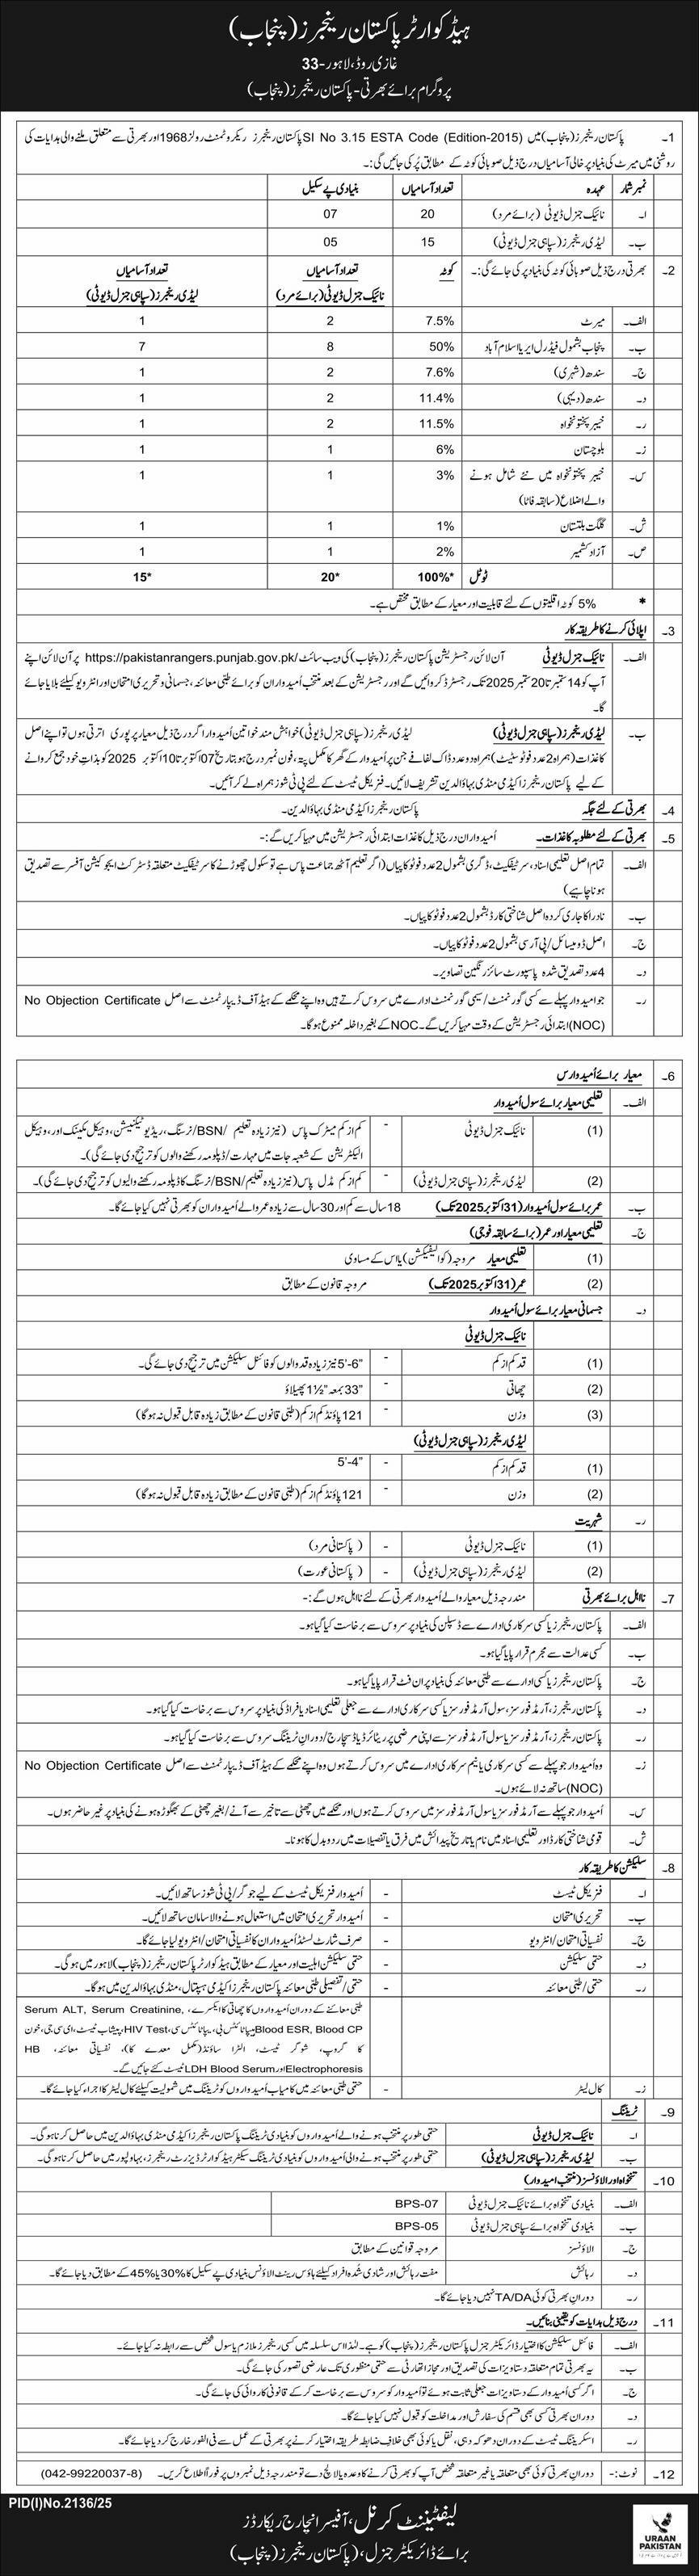 ہیڈ کوارٹر پاکستان رینجرز (پنجاب)
غازی روڈ، لاہور-33
پروگرام برائے بھرتی - پاکستان رینجرز (پنجاب)
1۔ پاکستان رینجرز (پنجاب) میں SI No 3.15 ESTA Code (Edition-2015) پاکستان رینجرز ریکروٹمنٹ رولز 1968 اور بھرتی سے متعلق ملنے والی ہدایات کی
روشنی میں میرٹ کی بنیاد پر خالی آسامیاں درج ذیل صوبائی کوٹہ کے مطابق پُر کی جائیں گی:۔
نمبر شمار عہدہ تعداد آسامیاں بنیادی پے سکیل
ا۔ نائیک جنرل ڈیوٹی (برائے مرد) 20 07
ب۔ لیڈی رینجرز (سپاہی جنرل ڈیوٹی) 15 05
2۔ بھرتی درج ذیل صوبائی کوٹہ کی بنیاد پر کی جائے گی:۔ کوٹہ تعداد آسامیاں تعداد آسامیاں
نائیک جنرل ڈیوٹی (برائے مرد) لیڈی رینجرز (سپاہی جنرل ڈیوٹی)
الف۔ میرٹ 7.5% 2 1
ب۔ پنجاب بشمول فیڈرل ایریا اسلام آباد 50% 8 7
ج۔ سندھ (شہری) 7.6% 2 1
د۔ سندھ (دیہی) 11.4% 2 1
ر۔ خیبر پختونخواہ 11.5% 2 1
ز۔ بلوچستان 6% 1 1
س۔ خیبر پختونخواہ میں نئے شامل ہونے 3% 1 1
والے اضلاع (سابقہ فاٹا)
ش۔ گلگت بلتستان 1% 1 1
ص۔ آزاد کشمیر 2% 1 1
ٹوٹل 100%* 20* 15*
* 5% کوٹہ اقلیتوں کے لئے قابلیت اور معیار کے مطابق مختص ہے۔
3۔ اپلائی کرنے کا طریقہ کار
الف۔ نائیک جنرل ڈیوٹی آن لائن رجسٹریشن پاکستان رینجرز (پنجاب) کی ویب سائٹ https://pakistanrangers.punjab.gov.pk/ پر آن لائن اپنے
آپ کو 14 ستمبر تا 20 ستمبر 2025 تک رجسٹرڈ کروائیں گے اور رجسٹریشن کے بعد منتخب اُمیدواران کو برائے طبی معائنہ، جسمانی و تحریری امتحان اور انٹرویو کیلئے بلایا جائے
گا۔
ب۔ لیڈی رینجرز (سپاہی جنرل ڈیوٹی) لیڈی رینجرز (سپاہی جنرل ڈیوٹی) خواہش مند خواتین اُمیدوار اگر درج ذیل معیار پر پوری اترتی ہوں تو اپنے اصل
کاغذات (ہمراہ 2 عدد فوٹو سٹیٹ) ہمراہ دو عدد ڈاک لفافے جن پر اُمیدوار کے گھر کا مکمل پتہ، فون نمبر درج ہو بتاریخ 07 اکتوبر تا 10 اکتوبر 2025 کو بذاتِ خود جمع کروانے
کے لیے پاکستان رینجرز اکیڈمی منڈی بہاؤالدین تشریف لائیں۔ فزیکل ٹیسٹ کے لئے پی ٹی شوز ہمراہ لے کر آئیں۔
4۔ بھرتی کے لئے جگہ پاکستان رینجرز اکیڈمی منڈی بہاؤالدین۔
5۔ بھرتی کے لئے مطلوبہ کاغذات۔ اُمیدواران درج ذیل کاغذات ابتدائی رجسٹریشن میں مہیا کریں گے:-
الف۔ تمام اصل تعلیمی اسناد، سرٹیفکیٹ، ڈگری بشمول 2 عدد فوٹو کاپیاں (اگر تعلیم آٹھ جماعت پاس ہے تو سکول چھوڑنے کا سرٹیفکیٹ متعلقہ ڈسٹرکٹ ایجوکیشن آفسر سے تصدیق
ہونا چاہیے)
ب۔ نادرا کا جاری کردہ اصل شناختی کارڈ بشمول 2 عدد فوٹو کاپیاں۔
ج۔ اصل ڈومیسائل/پی آر سی بشمول 2 عدد فوٹو کاپیاں۔
د۔ 4 عدد تصدیق شدہ پاسپورٹ سائز رنگین تصاویر۔
ر۔ جو امیدوار پہلے سے کسی گورنمنٹ/سیمی گورنمنٹ ادارے میں سروس کرتے ہیں وہ اپنے محکمے کے ہیڈ آف ڈیپارٹمنٹ سے اصل No Objection Certificate
(NOC) ابتدائی رجسٹریشن کے وقت مہیا کریں گے۔ NOC کے بغیر داخلہ ممنوع ہو گا۔
6۔ معیار برائے اُمیدوارس
الف۔ تعلیمی معیار برائے سول اُمیدوار
(1) نائیک جنرل ڈیوٹی - کم از کم میٹرک پاس (نیز زیادہ تعلیم /BSN/نرسنگ، ریڈیو ٹیکنیشن، وہیکل مکینک اور، وہیکل
الیکٹریشن کے شعبہ جات میں مہارت/ڈپلومہ رکھنے والوں کو ترجیح دی جائے گی)۔
(2) لیڈی رینجرز (سپاہی جنرل ڈیوٹی) - کم از کم مڈل پاس (نیز زیادہ تعلیم/BSN/نرسنگ کا ڈپلومہ رکھنے والیوں کو ترجیح دی جائے گی)۔
ب۔ عمر برائے سول اُمیدوار (31 اکتوبر 2025 تک) 18 سال سے کم اور 30 سال سے زیادہ عمر والے اُمیدواران کو بھرتی نہیں کیا جائے گا۔
ج۔ تعلیمی معیار اور عمر (برائے سابقہ فوجی)
(1) تعلیمی معیار مروجہ (کوالیفیکشن) یا اس کے مساوی
(2) عمر (31 اکتوبر 2025 تک) مروجہ قانون کے مطابق
د۔ جسمانی معیار برائے سول اُمیدوار
نائیک جنرل ڈیوٹی
(1) قد کم از کم - 5'-6" نیز زیادہ قد والوں کو فائنل سلیکشن میں ترجیح دی جائے گی۔
(2) چھاتی - 33" بمعہ 1½" پھیلاؤ
(3) وزن - 121 پاؤنڈ کم از کم (طبی قانون کے مطابق زیادہ قابل قبول نہ ہو گا)
لیڈی رینجرز (سپاہی جنرل ڈیوٹی)
(1) قد کم از کم - 5'-4"
(2) وزن - 121 پاؤنڈ کم از کم (طبی قانون کے مطابق زیادہ قابل قبول نہ ہو گا)
ر۔ شہریت
(1) نائیک جنرل ڈیوٹی - (پاکستانی مرد)
(2) لیڈی رینجرز (سپاہی جنرل ڈیوٹی) - (پاکستانی عورت)
7۔ نااہل برائے بھرتی مندرجہ ذیل معیار والے اُمیدوار بھرتی کے لئے نااہل ہوں گے:-
الف۔ پاکستان رینجرز یا کسی سرکاری ادارے سے ڈسپلن کی بنیاد پر سروس سے برخاست کیا گیا ہو۔
ب۔ کسی عدالت سے مجرم قرار پایا گیا ہو۔
ج۔ پاکستان رینجرز یا کسی ادارے سے طبی معائنہ کی بنیاد پر ان فٹ قرار پایا گیا ہو۔
د۔ پاکستان رینجرز، آرمڈ فورسز، سول آرمڈ فورسز یا کسی سرکاری ادارے سے جعلی تعلیمی اسناد یا فراڈ کی بنیاد پر سروس سے برخاست کیا گیا ہو۔
ر۔ پاکستان رینجرز، آرمڈ فورسز یا سول آرمڈ فورسز سے اپنی مرضی پر ریٹائرڈ یا ڈسچارج/دورانِ ٹریننگ سروس سے برخاست کیا گیا ہو۔
ز۔ وہ اُمیدوار جو پہلے سے کسی سرکاری یا نیم سرکاری ادارے میں سروس کرتے ہوں وہ اپنے محکمے کے ہیڈ آف ڈیپارٹمنٹ سے اصل No Objection Certificate
(NOC) ساتھ نہ لائے ہوں۔
س۔ اُمیدوار جو پہلے سے آرمڈ فورسز یا سول آرمڈ فورسز میں سروس کرتے ہوں اور محکمے میں چھٹی سے تاخیر سے آنے/بغیر چھٹی کے بھگوڑہ ہونے کی بنیاد پر غیر حاضر ہوں۔
ش۔ قومی شناختی کارڈ اور تعلیمی اسناد میں نام یا تاریخ پیدائش میں فرق یا تفصیلات میں ردوبدل کا ہونا۔
8۔ سلیکشن کا طریقہ کار
ا۔ فزیکل ٹیسٹ - اُمیدوار فزیکل ٹیسٹ کے لیے جوگر/پی ٹی شوز ساتھ لائیں۔
ب۔ تحریری امتحان - اُمیدوار تحریری امتحان میں استعمال ہونے والا سامان ساتھ لائیں۔
ج۔ نفسیاتی امتحان/انٹرویو - صرف شارٹ لسٹڈ اُمیدواران کا نفسیاتی امتحان/انٹرویو لیا جائے گا۔
د۔ حتمی سلیکشن - حتمی سلیکشن اہلیت اور معیار کے مطابق ہیڈ کوارٹر پاکستان رینجرز (پنجاب) لاہور میں ہو گی۔
ر۔ حتمی/طبی معائنہ - حتمی/تفصیلی طبی معائنہ پاکستان رینجرز اکیڈمی ہسپتال، منڈی بہاؤالدین میں ہو گا۔
طبی معائنے کے دوران اُمیدواروں کا چھاتی کا ایکسرے، Serum ALT, Serum Creatinine,
Blood ESR, Blood CP ہیپاٹائٹس بی، ہیپاٹائٹس سی، HIV Test، پیشاب ٹیسٹ، ای سی جی، خون
کا گروپ، شوگر ٹیسٹ، الٹرا ساؤنڈ (مکمل معدے کا)، نفسیاتی معائنہ، HB
Electrophoresis اور LDH Blood Serum ٹیسٹ کئے جائیں گے۔
ز۔ کال لیٹر - حتمی طبی معائنہ میں کامیاب اُمیدواروں کو ٹریننگ میں شمولیت کیلئے کال لیٹر کا اجراء کیا جائے گا۔
9۔ ٹریننگ
ا۔ نائیک جنرل ڈیوٹی حتمی طور پر منتخب ہونے والے اُمیدواروں کو بنیادی ٹریننگ پاکستان رینجرز اکیڈمی منڈی بہاؤالدین میں حاصل کرنا ہو گی۔
ب۔ لیڈی رینجرز (سپاہی جنرل ڈیوٹی) حتمی طور پر منتخب ہونے والی اُمیدواروں کو بنیادی ٹریننگ سیکٹر ہیڈ کوارٹر ڈیزرٹ رینجرز، بہاولپور میں حاصل کرنا ہو گی۔
10۔ تنخواہ اور الاؤنسز (منتخب امیدوار)
الف۔ بنیادی تنخواہ برائے نائیک جنرل ڈیوٹی BPS-07
ب۔ بنیادی تنخواہ برائے سپاہی جنرل ڈیوٹی BPS-05
ج۔ الاؤنسز مروجہ قوانین کے مطابق
د۔ رہائش مفت رہائش اور شادی شُدہ افراد کیلئے ہاؤس رینٹ الاؤنس بنیادی پے سکیل کا 30% یا 45% کے مطابق دیا جائے گا۔
ر۔ دورانِ بھرتی کوئی TA/DA نہیں دیا جائے گا۔
11۔ درج ذیل ہدایات کو یقینی بنائیں۔
الف۔ فائنل سلیکشن کا اختیار ڈائریکٹر جنرل پاکستان رینجرز (پنجاب) کو ہے۔ لہٰذا اس سلسلہ میں کسی رینجرز ملازم یا سول شخص سے رابطہ نہ کیا جائے۔
ب۔ یہ بھرتی تمام متعلقہ دستاویزات کی تصدیق اور مجاز اتھارٹی سے حتمی منظوری تک عارضی تصور کی جائے گی۔
ج۔ اگر کسی اُمیدوار کے دستاویزات جعلی ثابت ہوئے تو اُمیدوار کو سروس سے برخاست کر کے قانونی کاروائی کی جائے گی۔
د۔ دورانِ بھرتی کسی بھی قسم کی سفارش اور مداخلت کو قبول نہیں کیا جائے گا۔
ر۔ اسکریننگ ٹیسٹ کے دوران دھوکہ دہی، نقل یا کوئی بھی خلافِ ضابطہ طریقہ اختیار کرنے پر بھرتی کے عمل سے فی الفور خارج کر دیا جائے گا۔
12۔ نوٹ:- دورانِ بھرتی کوئی بھی متعلقہ یا غیر متعلقہ شخص آپ کو بھرتی کرنے کا وعدہ یا لالچ دے تو مندرجہ ذیل نمبروں پر فوراً اطلاع کریں۔ (042-99220037-8)
PID(I)No.2136/25
لیفٹیننٹ کرنل، آفیسر انچارج ریکارڈز
برائے ڈائریکٹر جنرل، (پاکستان رینجرز (پنجاب)
URAAN
PAKISTAN